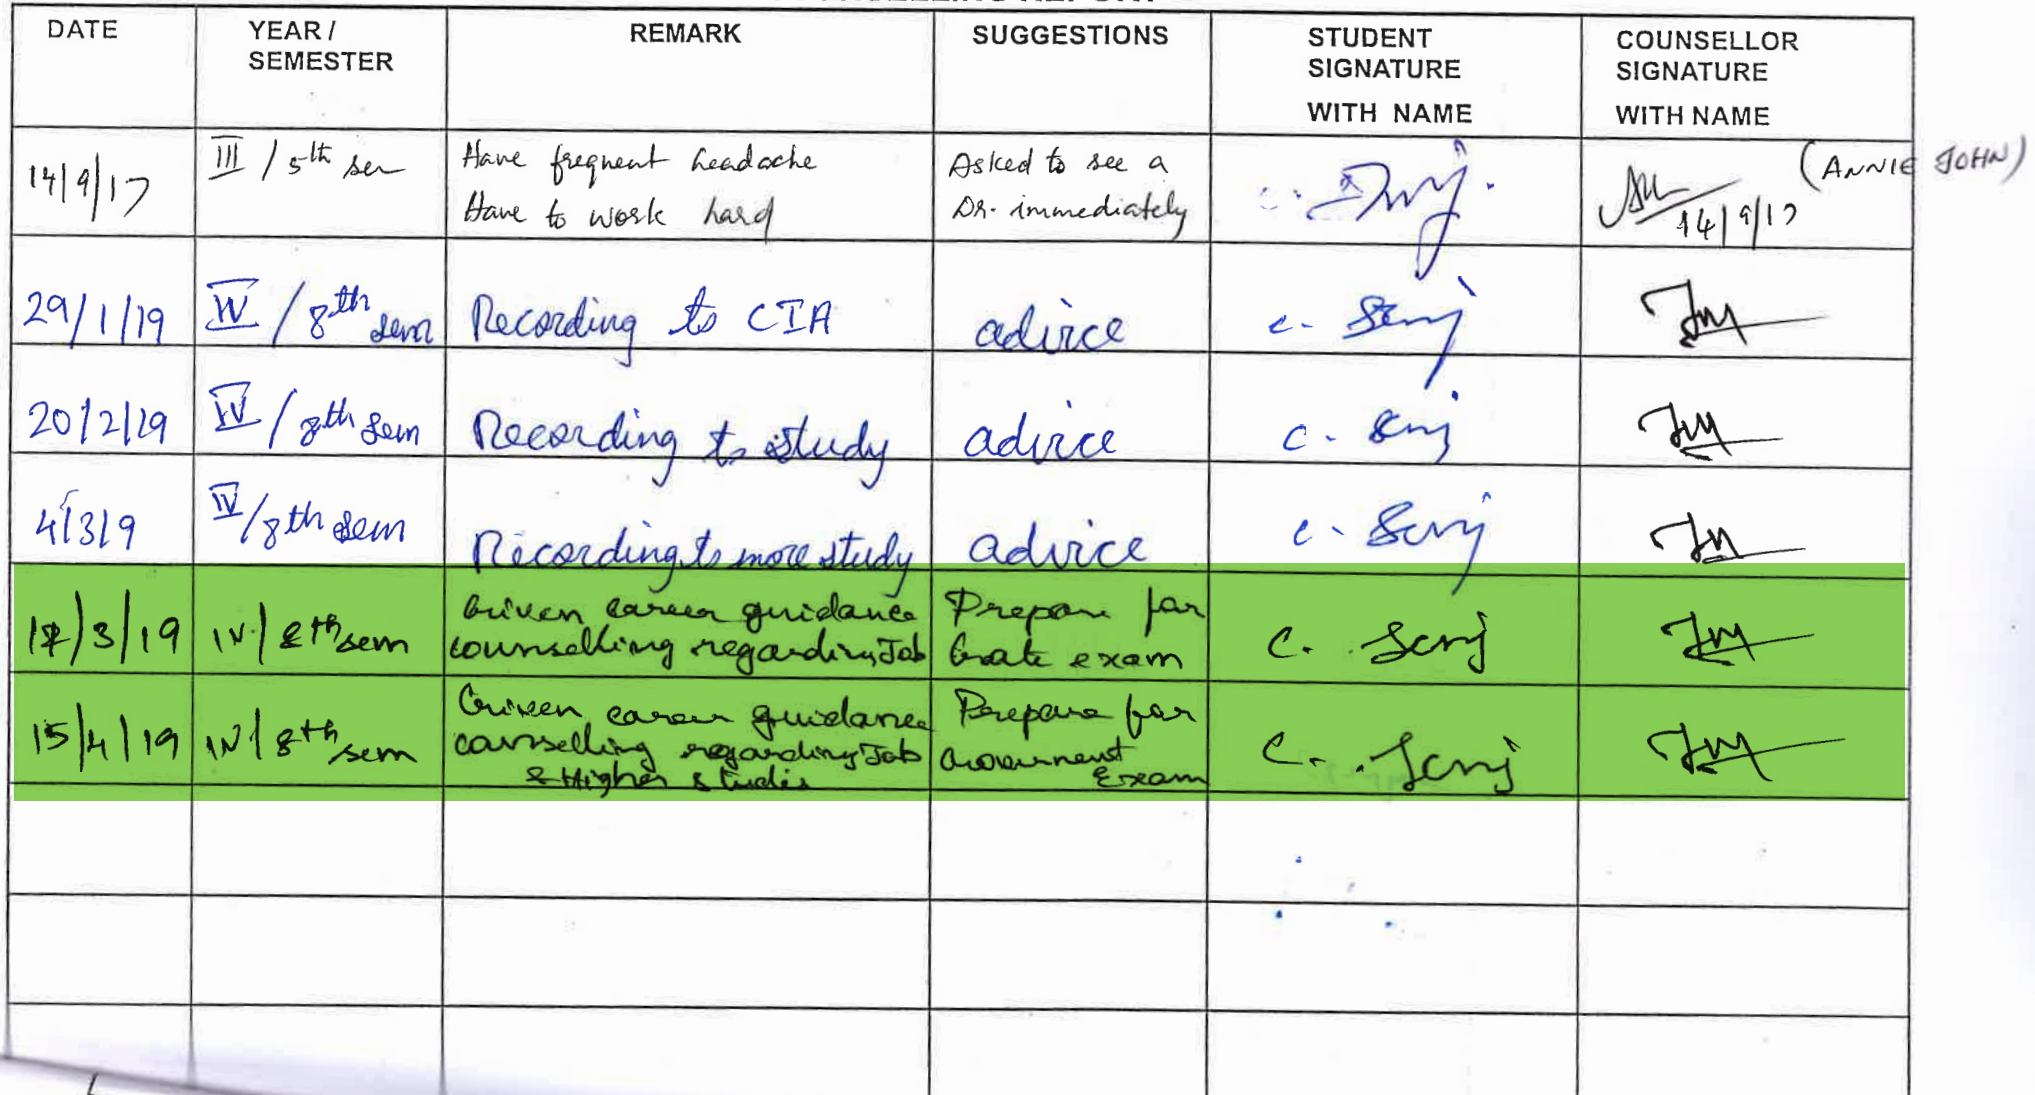 DATE
YEAR /
SEMESTER
REMARK
SUGGESTIONS
STUDENT
SIGNATURE
WITH NAME
COUNSELLOR
SIGNATURE
WITH NAME
14/9/17
III / 5th sem
Have frequent headache
Have to work hard
Asked to see a
Dr. immediately
(ANNIE JOHN)
14/9/17
29/1/19
IV / 8th sem
Recording to CIA
advice
20/2/19
IV / 8th sem
Recording to study
advice
4/3/9
IV / 8th sem
Recording to more study
advice
/3/19
IV / 8th sem
Given career guidance
counselling regarding Job
Prepare for
Gate exam
15/4/19
IV / 8th sem
Given career guidance
counselling regarding Job
& Higher studies
Prepare for
Government
Exam